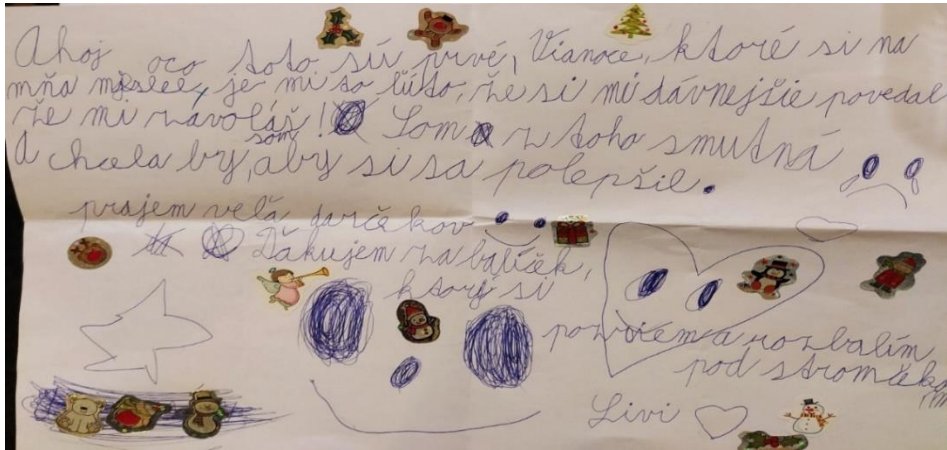 Ahoj oco toto sú prvé, Vianoce, ktoré si na
mňa myslel, je mi to ľúto, že si mi dávnejšie povedal
že mi zavoláš! Som z toho smutná
A chcela by som, aby si sa polepšil.
prajem veľa darčekov
Ďakujem za balíček,
ktorý si
pozriem a rozbalím
pod stromčekom
Livi